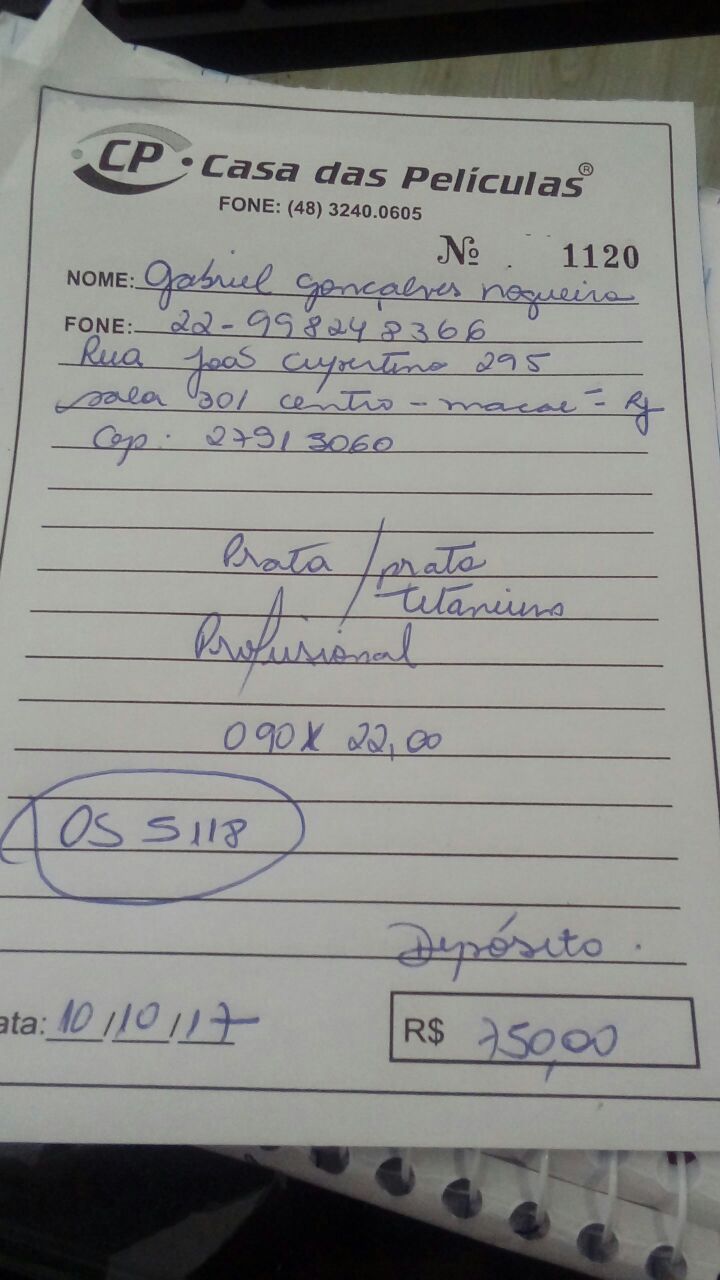 CP • Casa das Películas®
FONE: (48) 3240.0605
Nº 1120
NOME: Gabriel Gonçalves Nogueira
FONE: 22-998248366
Rua João Cupertino 295
sala 301 centro - macaé = RJ
Cep: 27913060
Prata / prata
titanium
Profissional
090 X 22,00
OS 5118
Depósito.
ata: 10/10/17
R$ 750,00